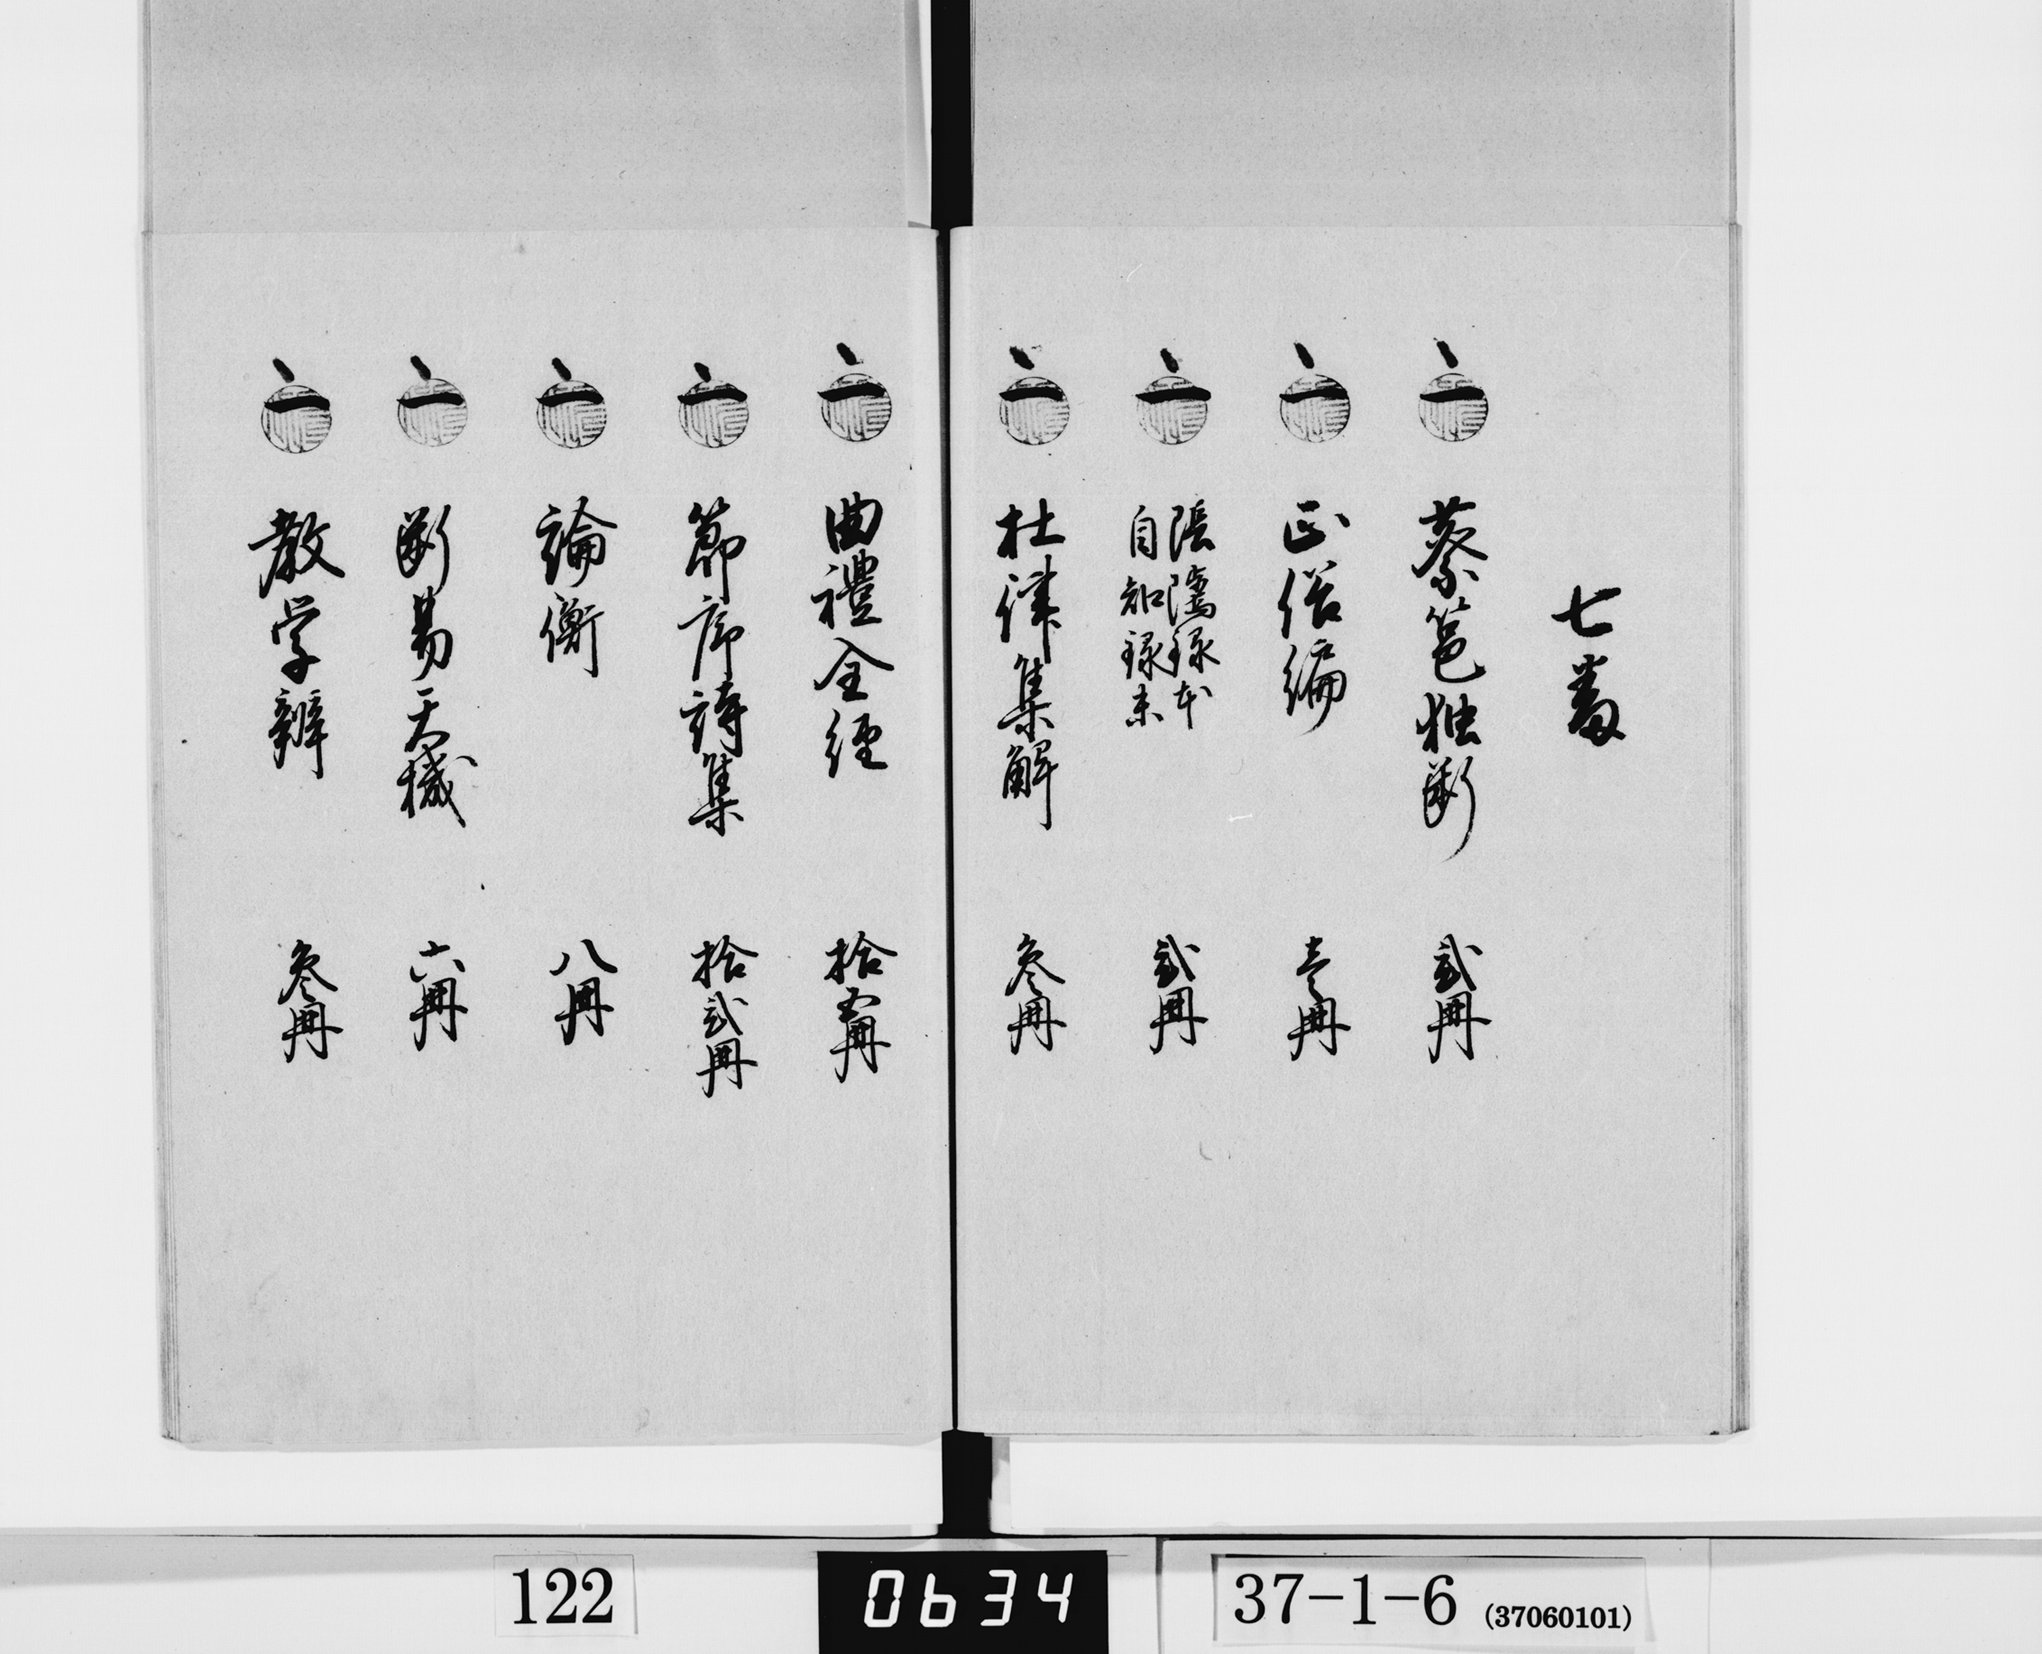 七番
一 蔡邕独断 弐冊
一 正俗編 壱冊
一 陰隲録本 自知録末 弐冊
一 杜律集解 叁冊
一 曲禮全經 拾五冊
一 節序詩集 拾弐冊
一 論衡 八冊
一 断易天機 六冊
一 教学辨 叁冊
122
0634
37-1-6 (37060101)